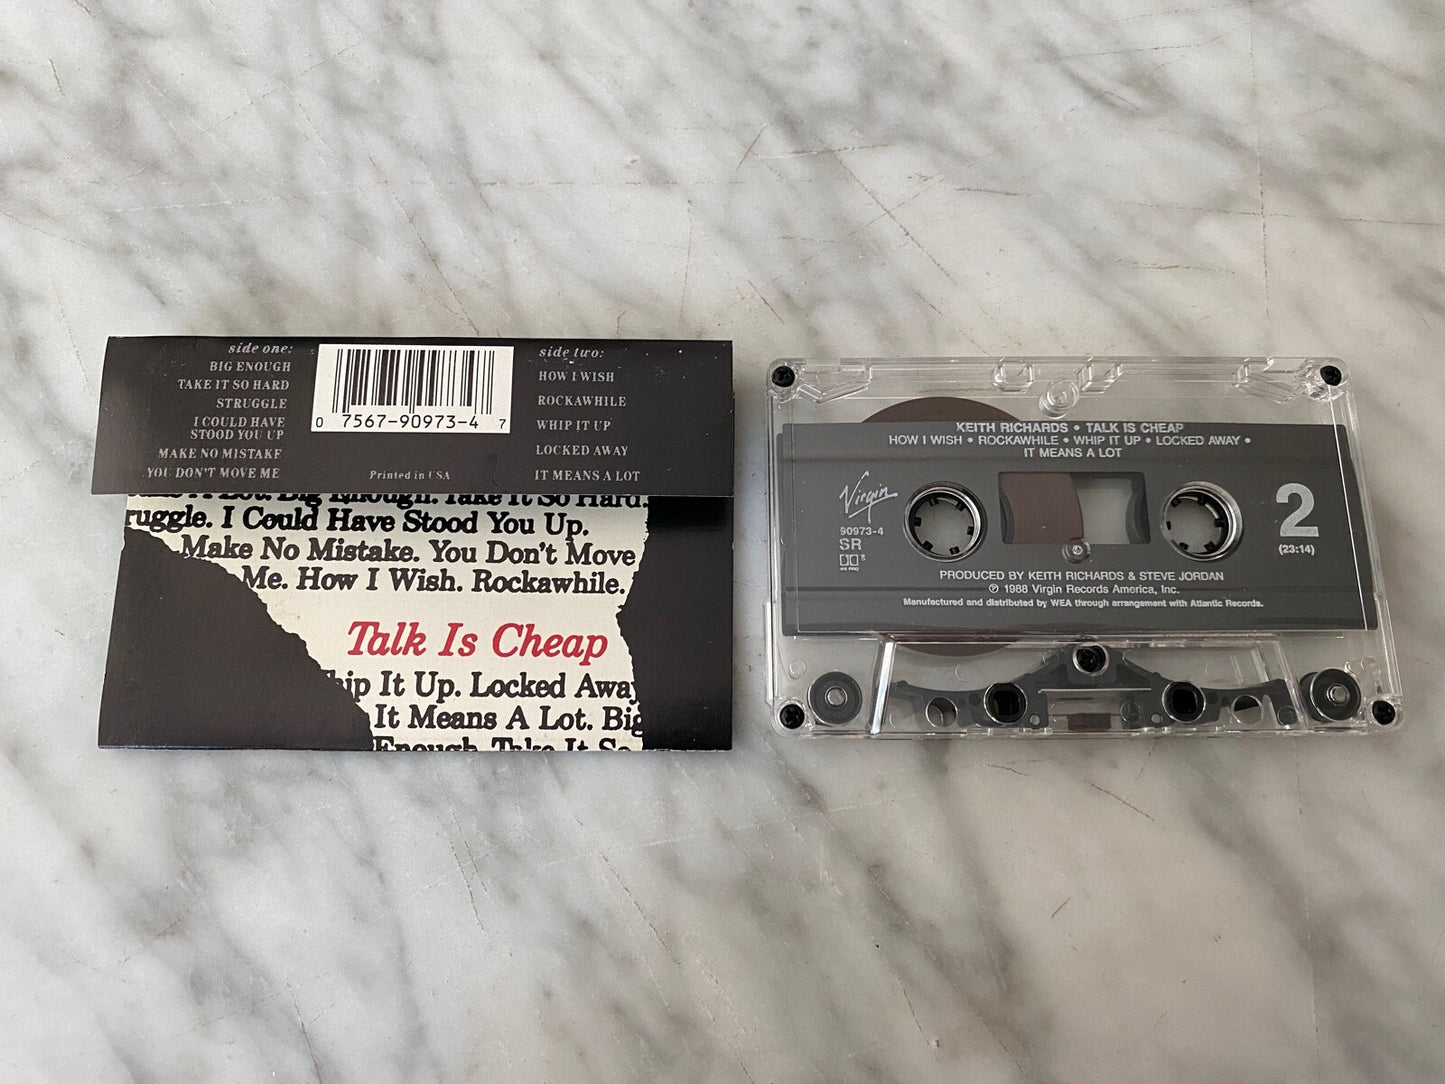 side one:
BIG ENOUGH
TAKE IT SO HARD
STRUGGLE
I COULD HAVE
STOOD YOU UP
MAKE NO MISTAKE
YOU DON'T MOVE ME
0 7567-90973-4 7
Printed in USA
side two:
HOW I WISH
ROCKAWHILE
WHIP IT UP
LOCKED AWAY
IT MEANS A LOT
A Lot. Big Enough. Take It So Hard.
ruggle. I Could Have Stood You Up.
Make No Mistake. You Don't Move
Me. How I Wish. Rockawhile.
Talk Is Cheap
hip It Up. Locked Away
It Means A Lot. Big
Enough. Take It So
KEITH RICHARDS • TALK IS CHEAP
HOW I WISH • ROCKAWHILE • WHIP IT UP • LOCKED AWAY •
IT MEANS A LOT
Virgin
90973-4
SR
HX PRO
2
(23:14)
PRODUCED BY KEITH RICHARDS & STEVE JORDAN
℗ 1988 Virgin Records America, Inc.
Manufactured and distributed by WEA through arrangement with Atlantic Records.